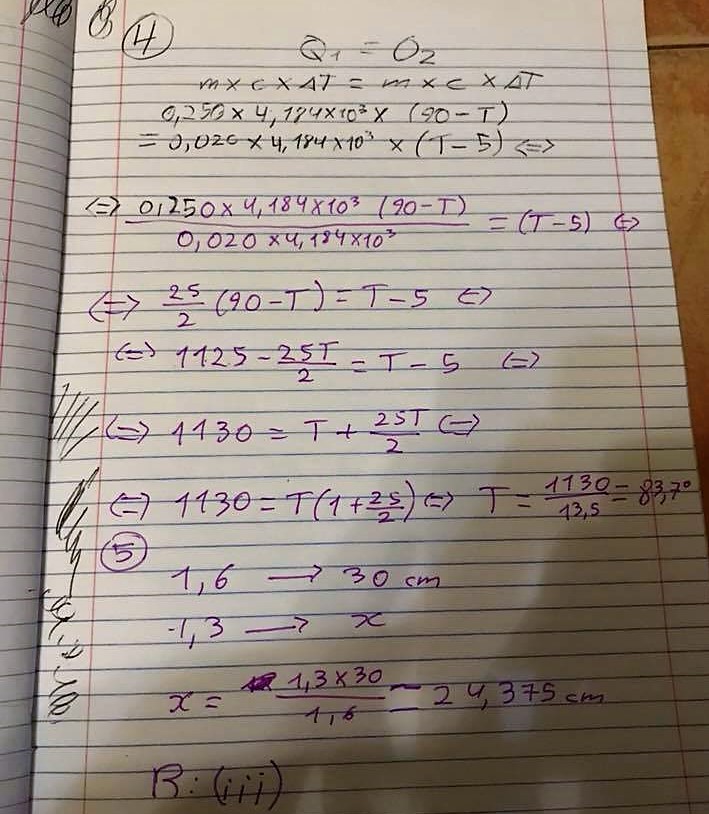 ④
Q₁ = Q₂
m × c × ΔT = m × c × ΔT
0,250 × 4,184×10³ × (90 - T)
= 0,020 × 4,184×10³ × (T - 5) <=>
<=> 0,250 × 4,184×10³ (90 - T) / 0,020 × 4,184×10³ = (T - 5) <=>
<=> 25/2 (90 - T) = T - 5 <=>
<=> 1125 - 25T/2 = T - 5 <=>
<=> 1130 = T + 25T/2 <=>
<=> 1130 = T(1 + 25/2) <=> T = 1130/13,5 = 83,7°
⑤
1,6 → 30 cm
1,3 → x
x = 1,3 × 30 / 1,6 = 24,375 cm
R: (iii)